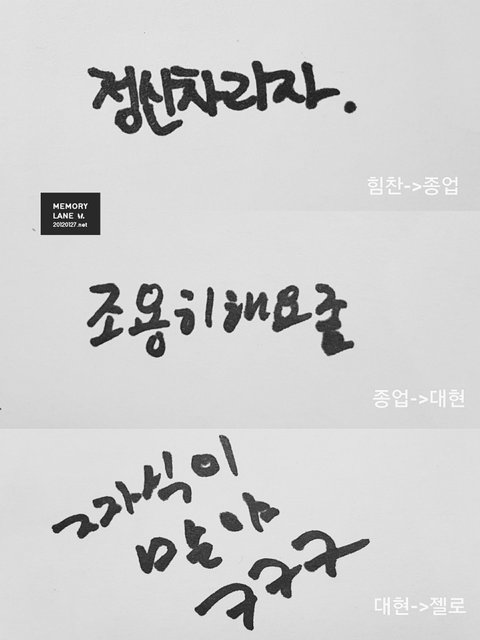 정신차라자.
힘찬->종업
MEMORY
LANE
20120127.net
조용히해요
종업->대현
짜식이
말야
ㅋㅋㅋ
대현->젤로